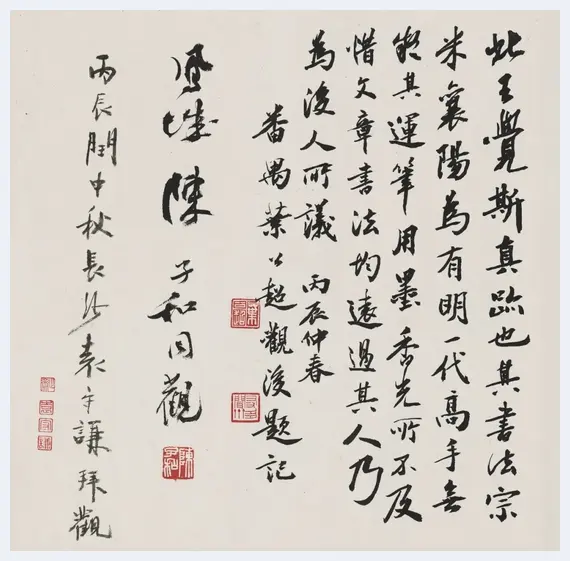 此王覺斯真跡也其書法宗
米襄陽為有明一代高手無
疑其運筆用墨香光所不及
惜文章書法均遠過其人乃
為後人所議 丙辰仲春
番禺葉公超觀後題記
鳳城陳子和同觀
陳子和
丙辰閏中秋長沙袁守謙拜觀